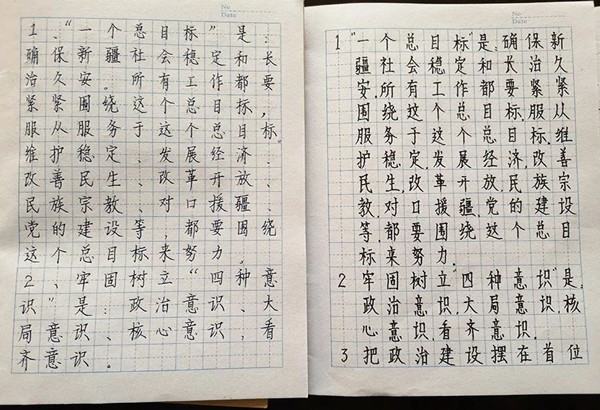 No
Date
1.“一个总目标”是:
确保新疆社会稳定和长
治久安。所有工作都要
紧紧围绕这个总目标,
服从服务于这个总目标。
维护稳定、发展经济、
改善民生、改革开放、
民族宗教、对口援疆、
党的建设等,都要围绕
这个总目标来努力。
2、牢固树立“四种意
识”是:政治意识、大
局意识、核心意识,看
齐意识.
No
Date
1“一个总目标”是:确保新
疆社会稳定和长治久
安,所有工作都要紧紧
围绕这个总目标,服从
服务于这个总目标.维
护稳定,发展经济,改善
民生,改革开放,民族宗
教,对口援疆,党的建设
等,都要围绕这个总目
标来努力.
2 牢固树立“四种意识”是,
政治意识,大局意识,核
心意识,看齐意识.
3 把政治建设摆在首位